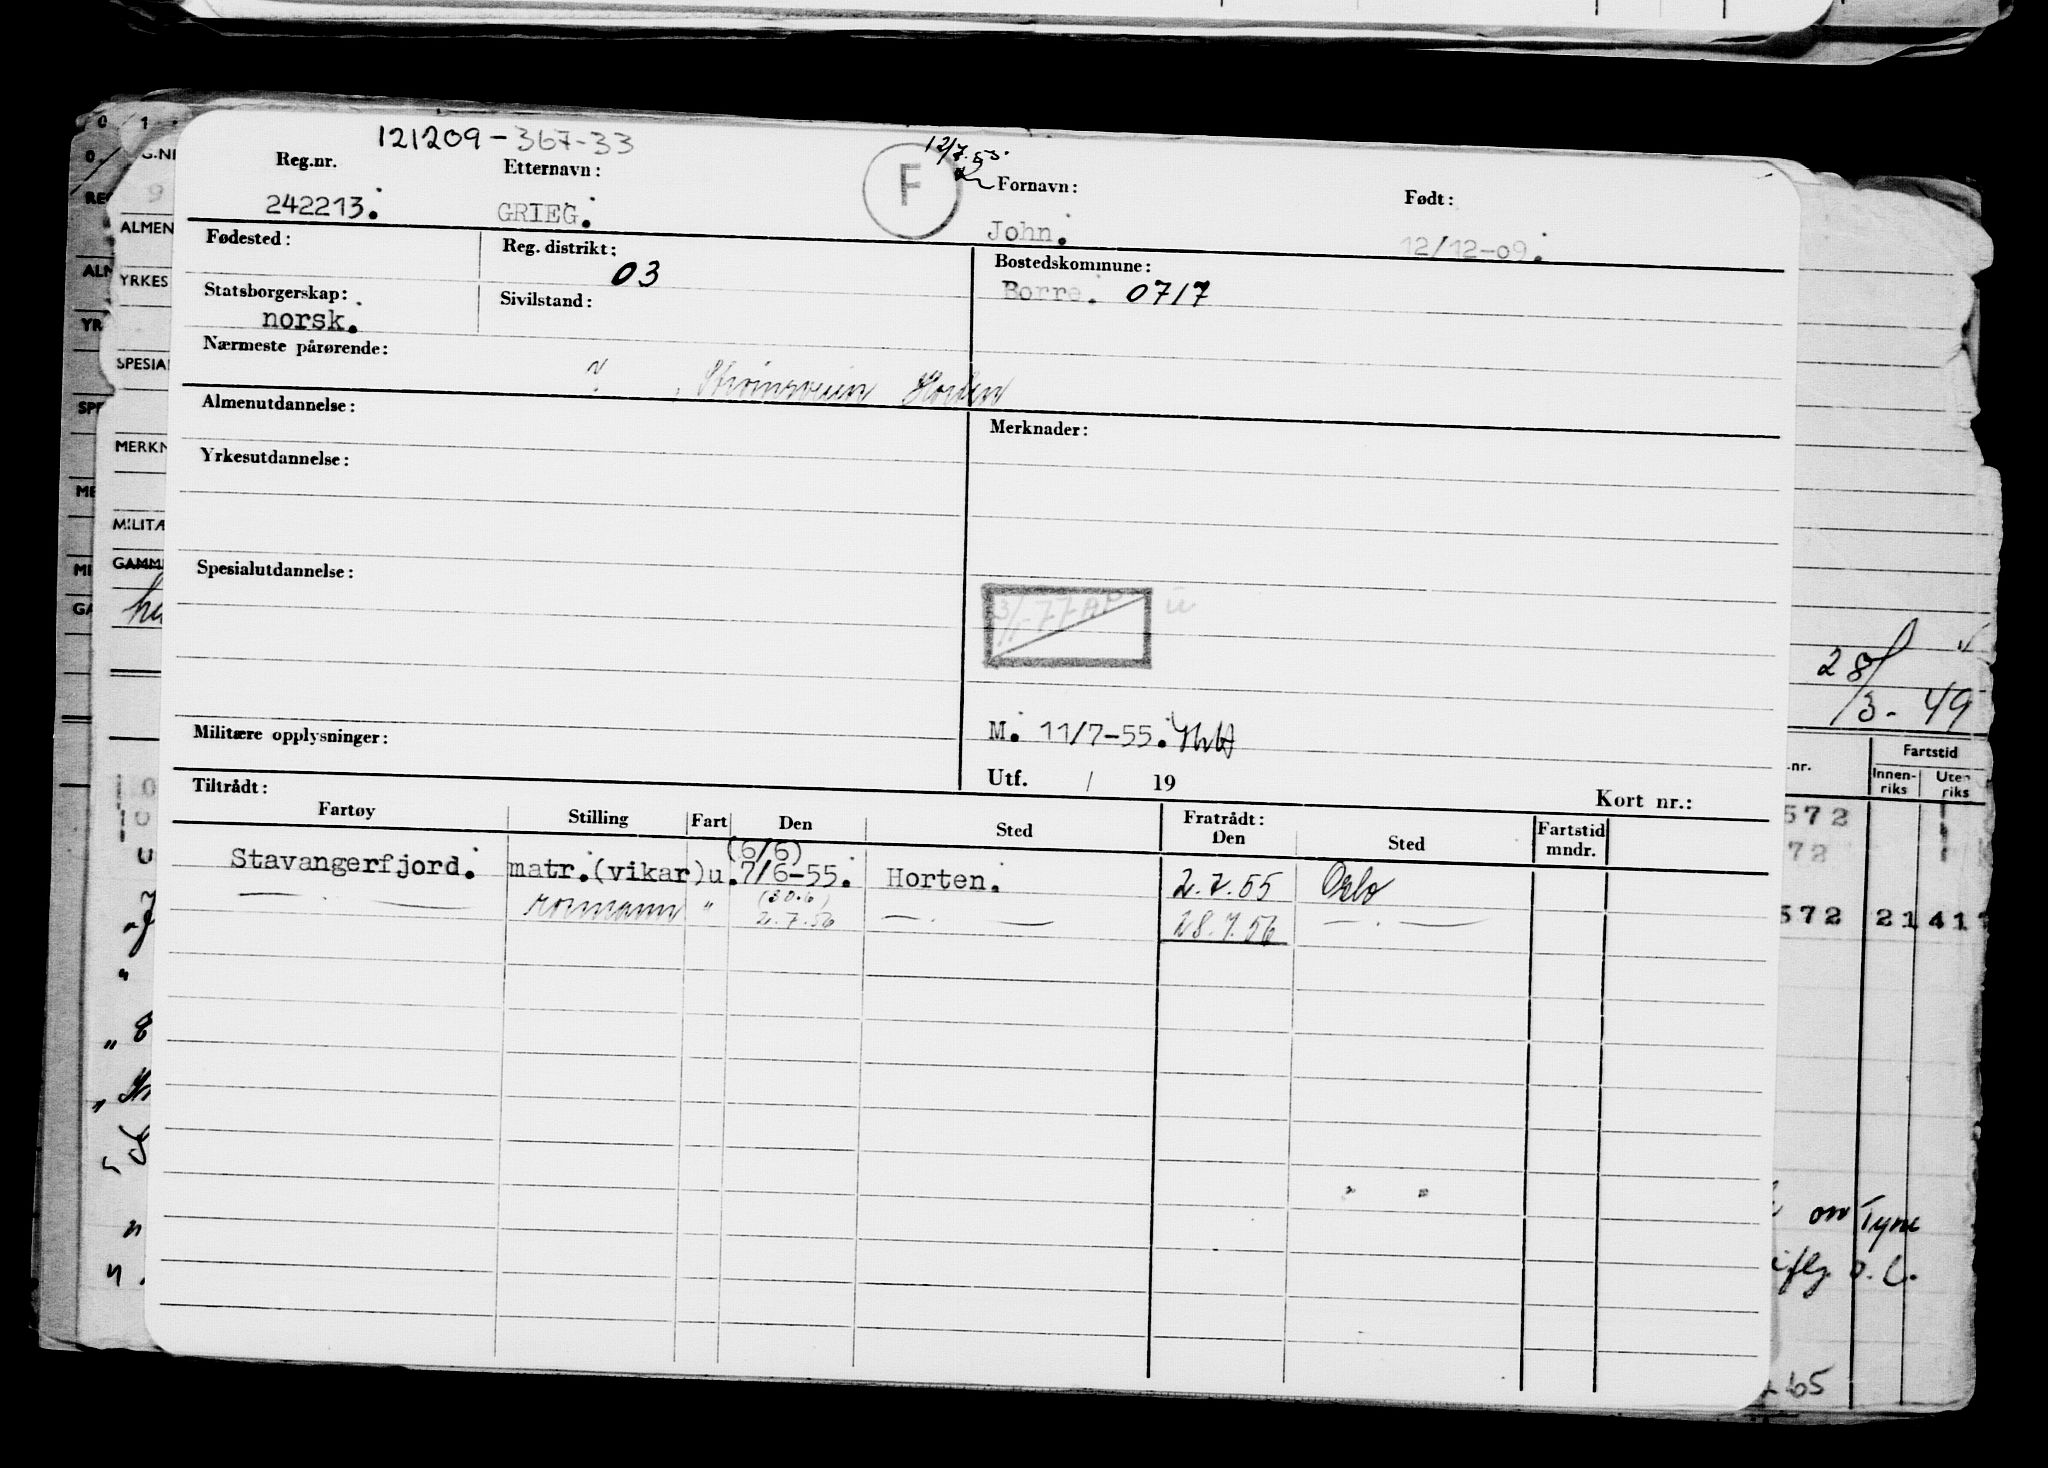 121209-367-33
Reg.nr. Etternavn: F 12/7.55. Fornavn: Født:
242213. GRIEG. John. 12/12-09.
Fødested: Reg. distrikt: 03 Bostedskommune:
Borre. 0717
Statsborgerskap: Sivilstand:
norsk.
Nærmeste pårørende:
? , Strømsveien Horten
Almenutdannelse: Merknader:
Yrkesutdannelse:
Spesialutdannelse:
Militære opplysninger: M. 11/7-55.
Utf. / 19 Kort nr.:
Tiltrådt: Fratrådt:
Fartøy Stilling Fart Den Sted Den Sted Fartstid mndr.
(6/6)
Stavangerfjord. matr.(vikar) u. 7/6-55. Horten. 2.7.55 Oslo
(30.6)
— . — rormann " 2.7.56 — . — 28.7.56 — . —
0 1
G.NR
ALMEN
YRKES
SPESIAL
MERKN
MILITÆ
GAMM
28/3-49
.nr. Fartstid
Innen-riks Uten riks
572
72
572 21 41
on Tyne
65